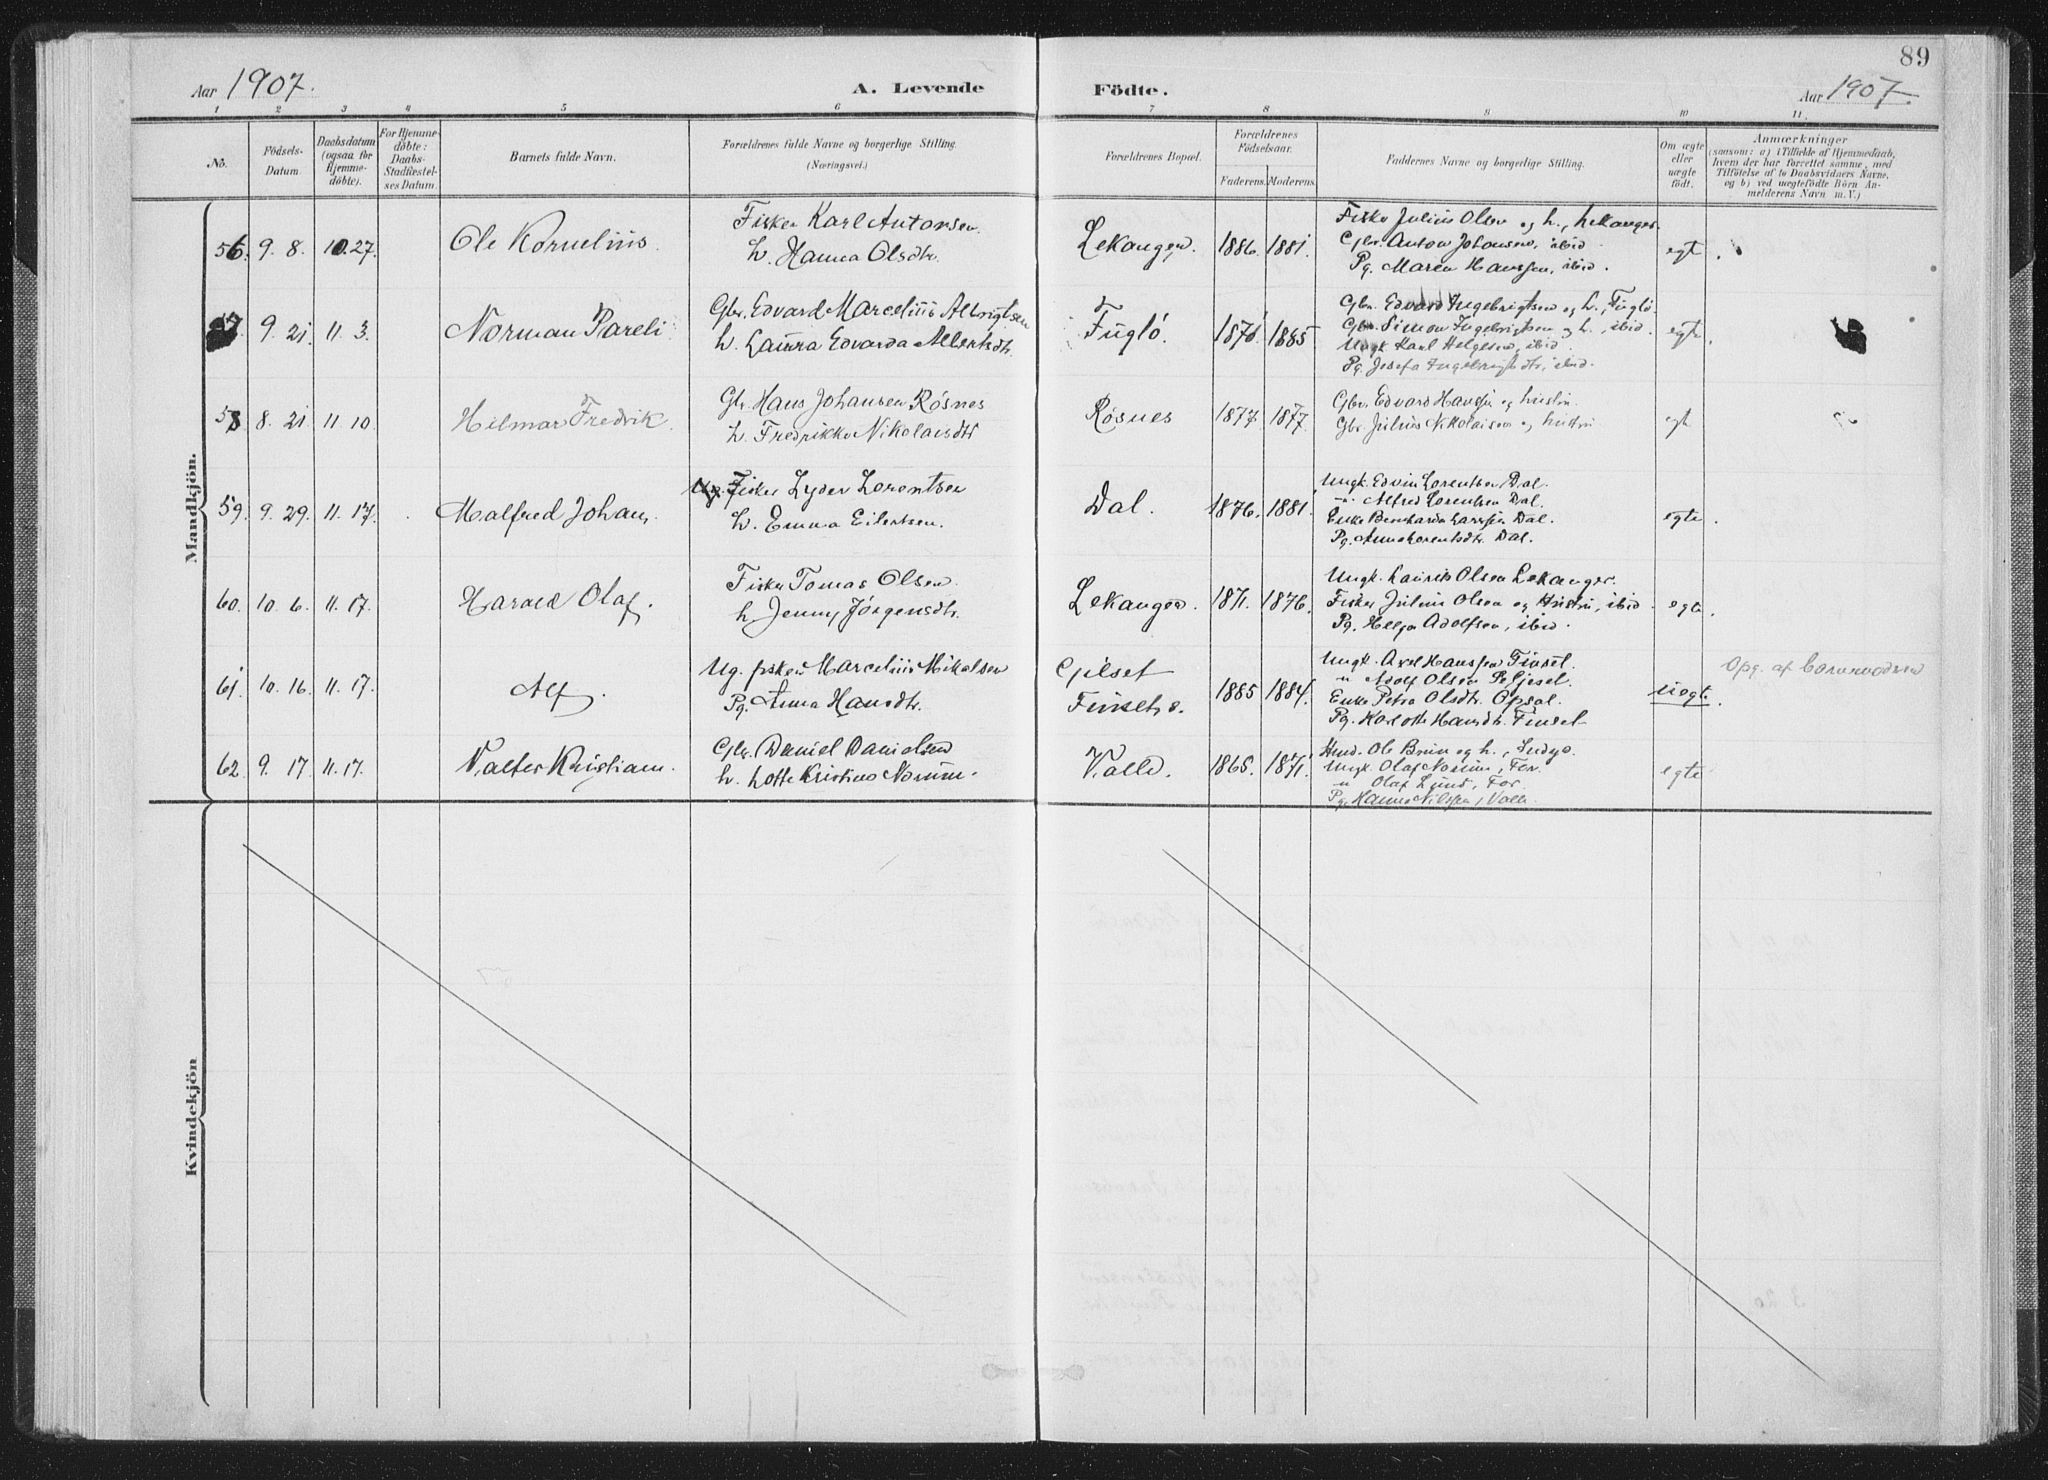 89
Aar 1907. A. Levende Födte. Aar 1907.
1 2 3 4 5 6 7 8 9 10 11.
No. Födsels-Datum Daabsdatum (ogsaa for Hjemme-döbte). For Hjemme-döbte: Daabs-Stadfæstel-ses Datum. Barnets fulde Navn. Forældrenes fulde Navne og borgerlige Stilling. (Næringsvei.) Forældrenes Bopæl. Forældrenes Födselsaar. Faderens. Moderens. Faddernes Navne og borgerlige Stilling. Om ægte eller uægte födt.
Anmærkninger
(saasom: a) i Tilfælde af Hjemmedaab,
hvem der har forrettet samme, med
Tilföielse af to Daabsvidners Navne,
og b) ved uægtefödte Börn An-
melderens Navn m. V.)
Mandkjön.
56. 9. 8. 10.27. Ole Kornelius.
Fisker Karl Antonsen
h. Hanna Olsdtr.
Lekanger. 1886. 1881.
Fisker Julius Olsen og h., Lekanger
Gbr. Anton Johansen, ibid.
Pg. Maren Hanssen, ibid.
egt.
57. 9. 21. 11. 3. Norman Pareli
Gbr. Edvard Marcelius Albrigtsen
h. Laura Edvarda Albertsdtr.
Fuglö. 1876 1885
Gbr. Edvard Ingebrigtsen og h., Fuglö.
Gbr. Simon Ingebrigtsen og h., ibid.
Ungk Karl Helgesen, ibid.
Pg. Josefa Ingebrigtsdtr, ibid.
egt.
58 8. 21. 11. 10. Hilmar Fredrik.
Gbr. Hans Johansen Rösnes
h. Fredrikke Nikolaisdtr
Rösnes 1877. 1877.
Gbr. Edvard Hanssen og hustru.
Gbr. Julius Nikolaisen og hustru
egt
59. 9. 29. 11. 17. Malfred Johan.
Fisker Lyder Lorentsen
h. Emma Eilertsen.
Dal. 1876. 1881.
Ungk. Edvin Lorentsen Dal.
–"– Alfred Lorentsen Dal.
Enke Bernharda Larssen Dal.
Pg. Anna Lorentsdtr. Dal.
egte.
60. 10. 6. 11. 17. Harald Olaf.
Fisker Tomas Olsen
h. Jenny Jörgensdtr.
Lekanger. 1871. 1876.
Ungk. Laurits Olsen Lekanger.
Fisker Julius Olsen og Hustru, ibid.
Pg. Helga Adolfsen, ibid.
egte.
61. 10. 16. 11. 17. Alf.
Ug. fisker Marcelius Mikalsen
Pg. Anna Hansdtr.
Gilset
Finset 1885 1884.
Ungk. Axel Hanssen Finset.
" Adolf Olsen
Enke Petra Olsdtr. Opsal.
Pg. Karlotte Hansdtr. Finset
uegte.
Opg. af barnemodren
62. 9. 17. 11. 17. Valter Kristian.
Gbr. Daniel Danielsen
h. Lotte Kristine Norum.
Valle. 1865. 1871.
Hmd. Ole Brun og h.,
Ungk. Olaf Norum, For.
" Olaf Lund, For.
Pg. Hanna Nilssen, Valle.
egte
Kvindekjön